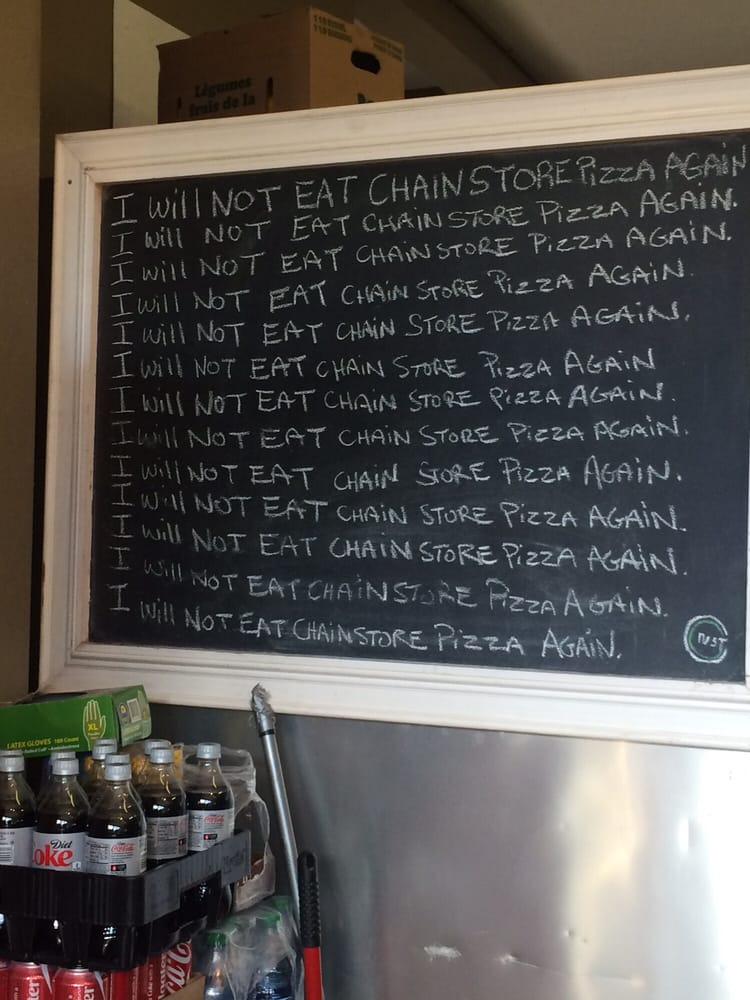 Légumes
frais de la
I will NOT EAT CHAINSTORE PizzA AGAiN
I will NOT EAT CHAiN STORE PizzA AGAiN.
I will NOT EAT CHAiN STORE PizzA AGAiN.
I will NOT EAT CHAiN STORE PizzA AGAiN.
I will NOT EAT CHAiN STORE PizzA AGAiN.
I will NOT EAT CHAiN STORE PizzA AGAiN
I will NOT EAT CHAiN STORE PizzA AGAiN.
I will NOT EAT CHAiN STORE PizzA AGAiN.
I will NOT EAT CHAiN STORE PizzA AGAiN.
I will NOT EAT CHAiN STORE PizzA AGAiN.
I will NOT EAT CHAiN STORE PizzA AGAiN.
I will NOT EAT CHAiN STORE PizzA AGAiN.
I will NOT EAT CHAiNSTORE PizzA AGAiN.
XL
LATEX GLOVES
Diet
Coke